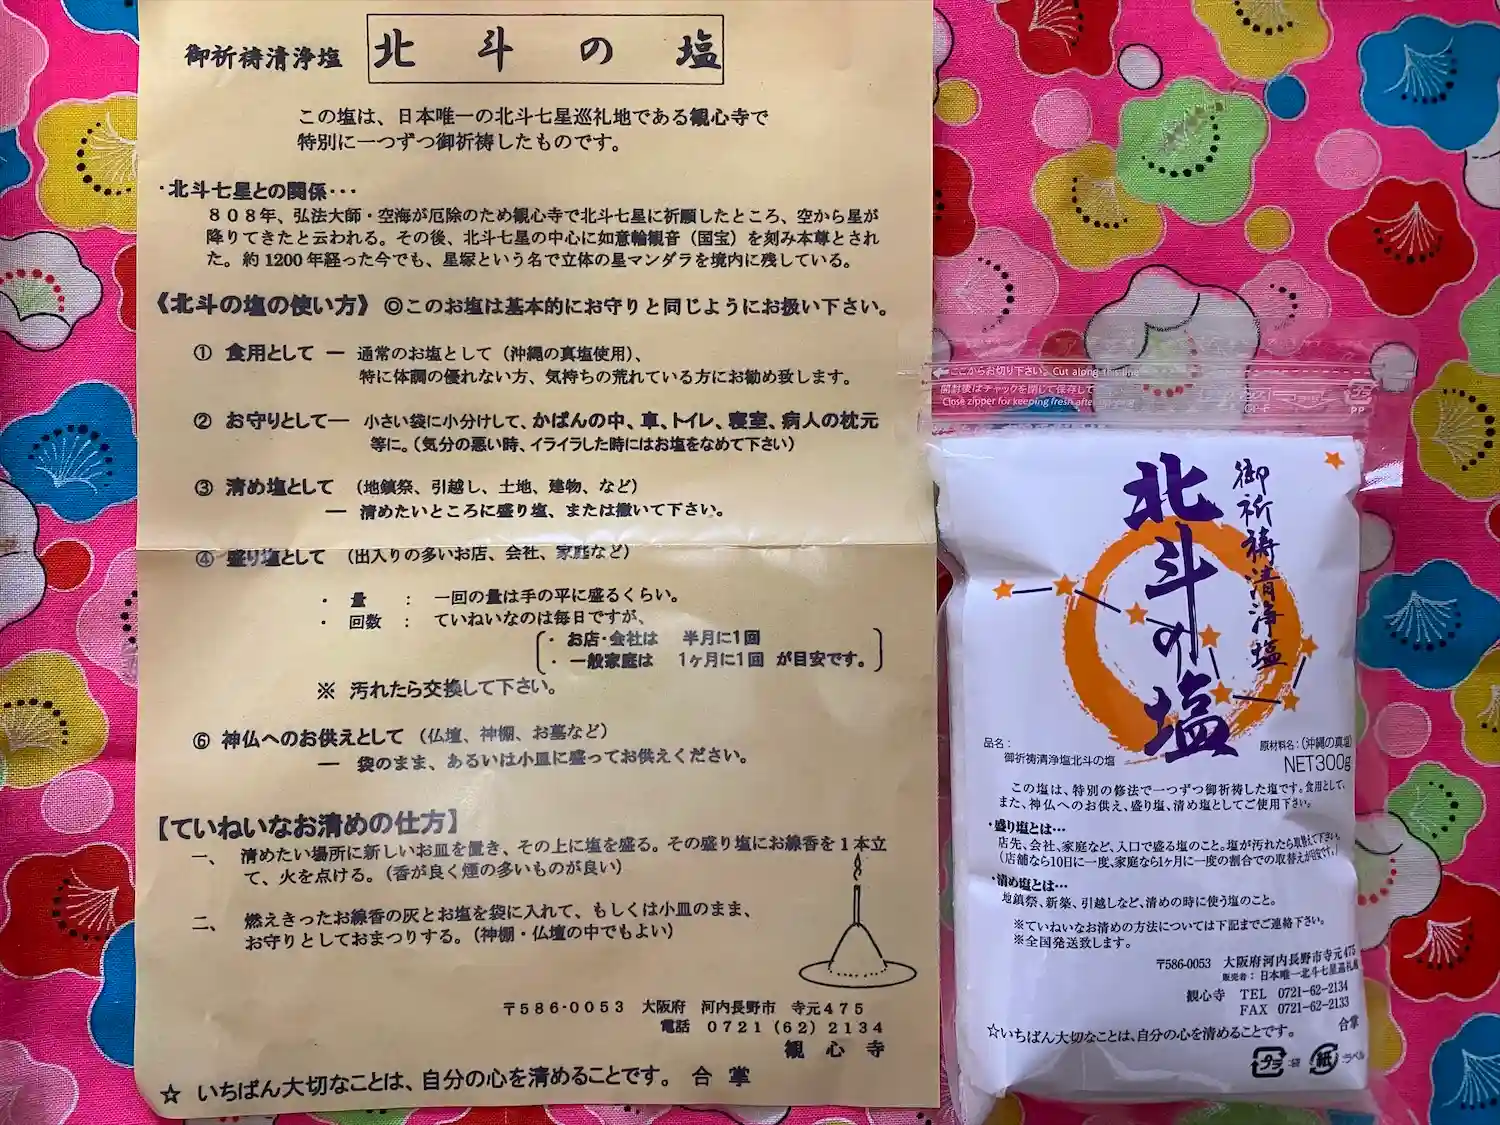 御祈祷清浄塩 北斗の塩
この塩は、日本唯一の北斗七星巡礼地である観心寺で
特別に一つずつ御祈祷したものです。
・北斗七星との関係・・・
８０８年、弘法大師・空海が厄除のため観心寺で北斗七星に祈願したところ、空から星が
降りてきたと云われる。その後、北斗七星の中心に如意輪観音（国宝）を刻み本尊とされ
た。約1200年経った今でも、星塚という名で立体の星マンダラを境内に残している。
《北斗の塩の使い方》 ◎このお塩は基本的にお守りと同じようにお扱い下さい。
① 食用として ー 通常のお塩として（沖縄の真塩使用）、
特に体調の優れない方、気持ちの荒れている方にお勧め致します。
② お守りとしてー 小さい袋に小分けして、かばんの中、車、トイレ、寝室、病人の枕元
等に。（気分の悪い時、イライラした時にはお塩をなめて下さい）
③ 清め塩として （地鎮祭、引越し、土地、建物、など）
ー 清めたいところに盛り塩、または撒いて下さい。
④ 盛り塩として （出入りの多いお店、会社、家庭など）
・ 量 ： 一回の量は手の平に盛るくらい。
・ 回数 ： ていねいなのは毎日ですが、
・ お店・会社は 半月に1回
・ 一般家庭は 1ヶ月に1回 が目安です。
※ 汚れたら交換して下さい。
⑥ 神仏へのお供えとして （仏壇、神棚、お墓など）
ー 袋のまま、あるいは小皿に盛ってお供えください。
【ていねいなお清めの仕方】
一、 清めたい場所に新しいお皿を置き、その上に塩を盛る。その盛り塩にお線香を１本立
て、火を点ける。（香が良く煙の多いものが良い）
二、 燃えきったお線香の灰とお塩を袋に入れて、もしくは小皿のまま、
お守りとしておまつりする。（神棚・仏壇の中でもよい）
〒５８６-００５３ 大阪府 河内長野市 寺元４７５
電話 ０７２１（６２）２１３４
観 心 寺
☆ いちばん大切なことは、自分の心を清めることです。 合 掌
ここからお切り下さい。Cut along this line
開封後はチャックを閉じて保存して
Close zipper for keeping fresh after
PP
御祈祷清浄塩
北斗の塩
品名：
御祈祷清浄塩北斗の塩
原材料名：（沖縄の真塩）
NET300g
この塩は、特別の修法で一つずつ御祈祷した塩です。食用として、
また、神仏へのお供え、盛り塩、清め塩としてご使用下さい。
・盛り塩とは…
店先、会社、家庭など、入口で盛る塩のこと。塩が汚れたら取替えて下さい。
（店舗なら10日に一度、家庭なら1ヶ月に一度の割合での取替えが目安です。）
・清め塩とは…
地鎮祭、新築、引越しなど、清めの時に使う塩のこと。
※ていねいなお清めの方法については下記までご連絡下さい。
※全国発送致します。
〒586-0053 大阪府河内長野市寺元475
販売者：日本唯一北斗七星巡礼
観心寺 TEL 0721-62-2134
FAX 0721-62-2133
☆いちばん大切なことは、自分の心を清めることです。 合掌
プラ 袋 紙 ラベル